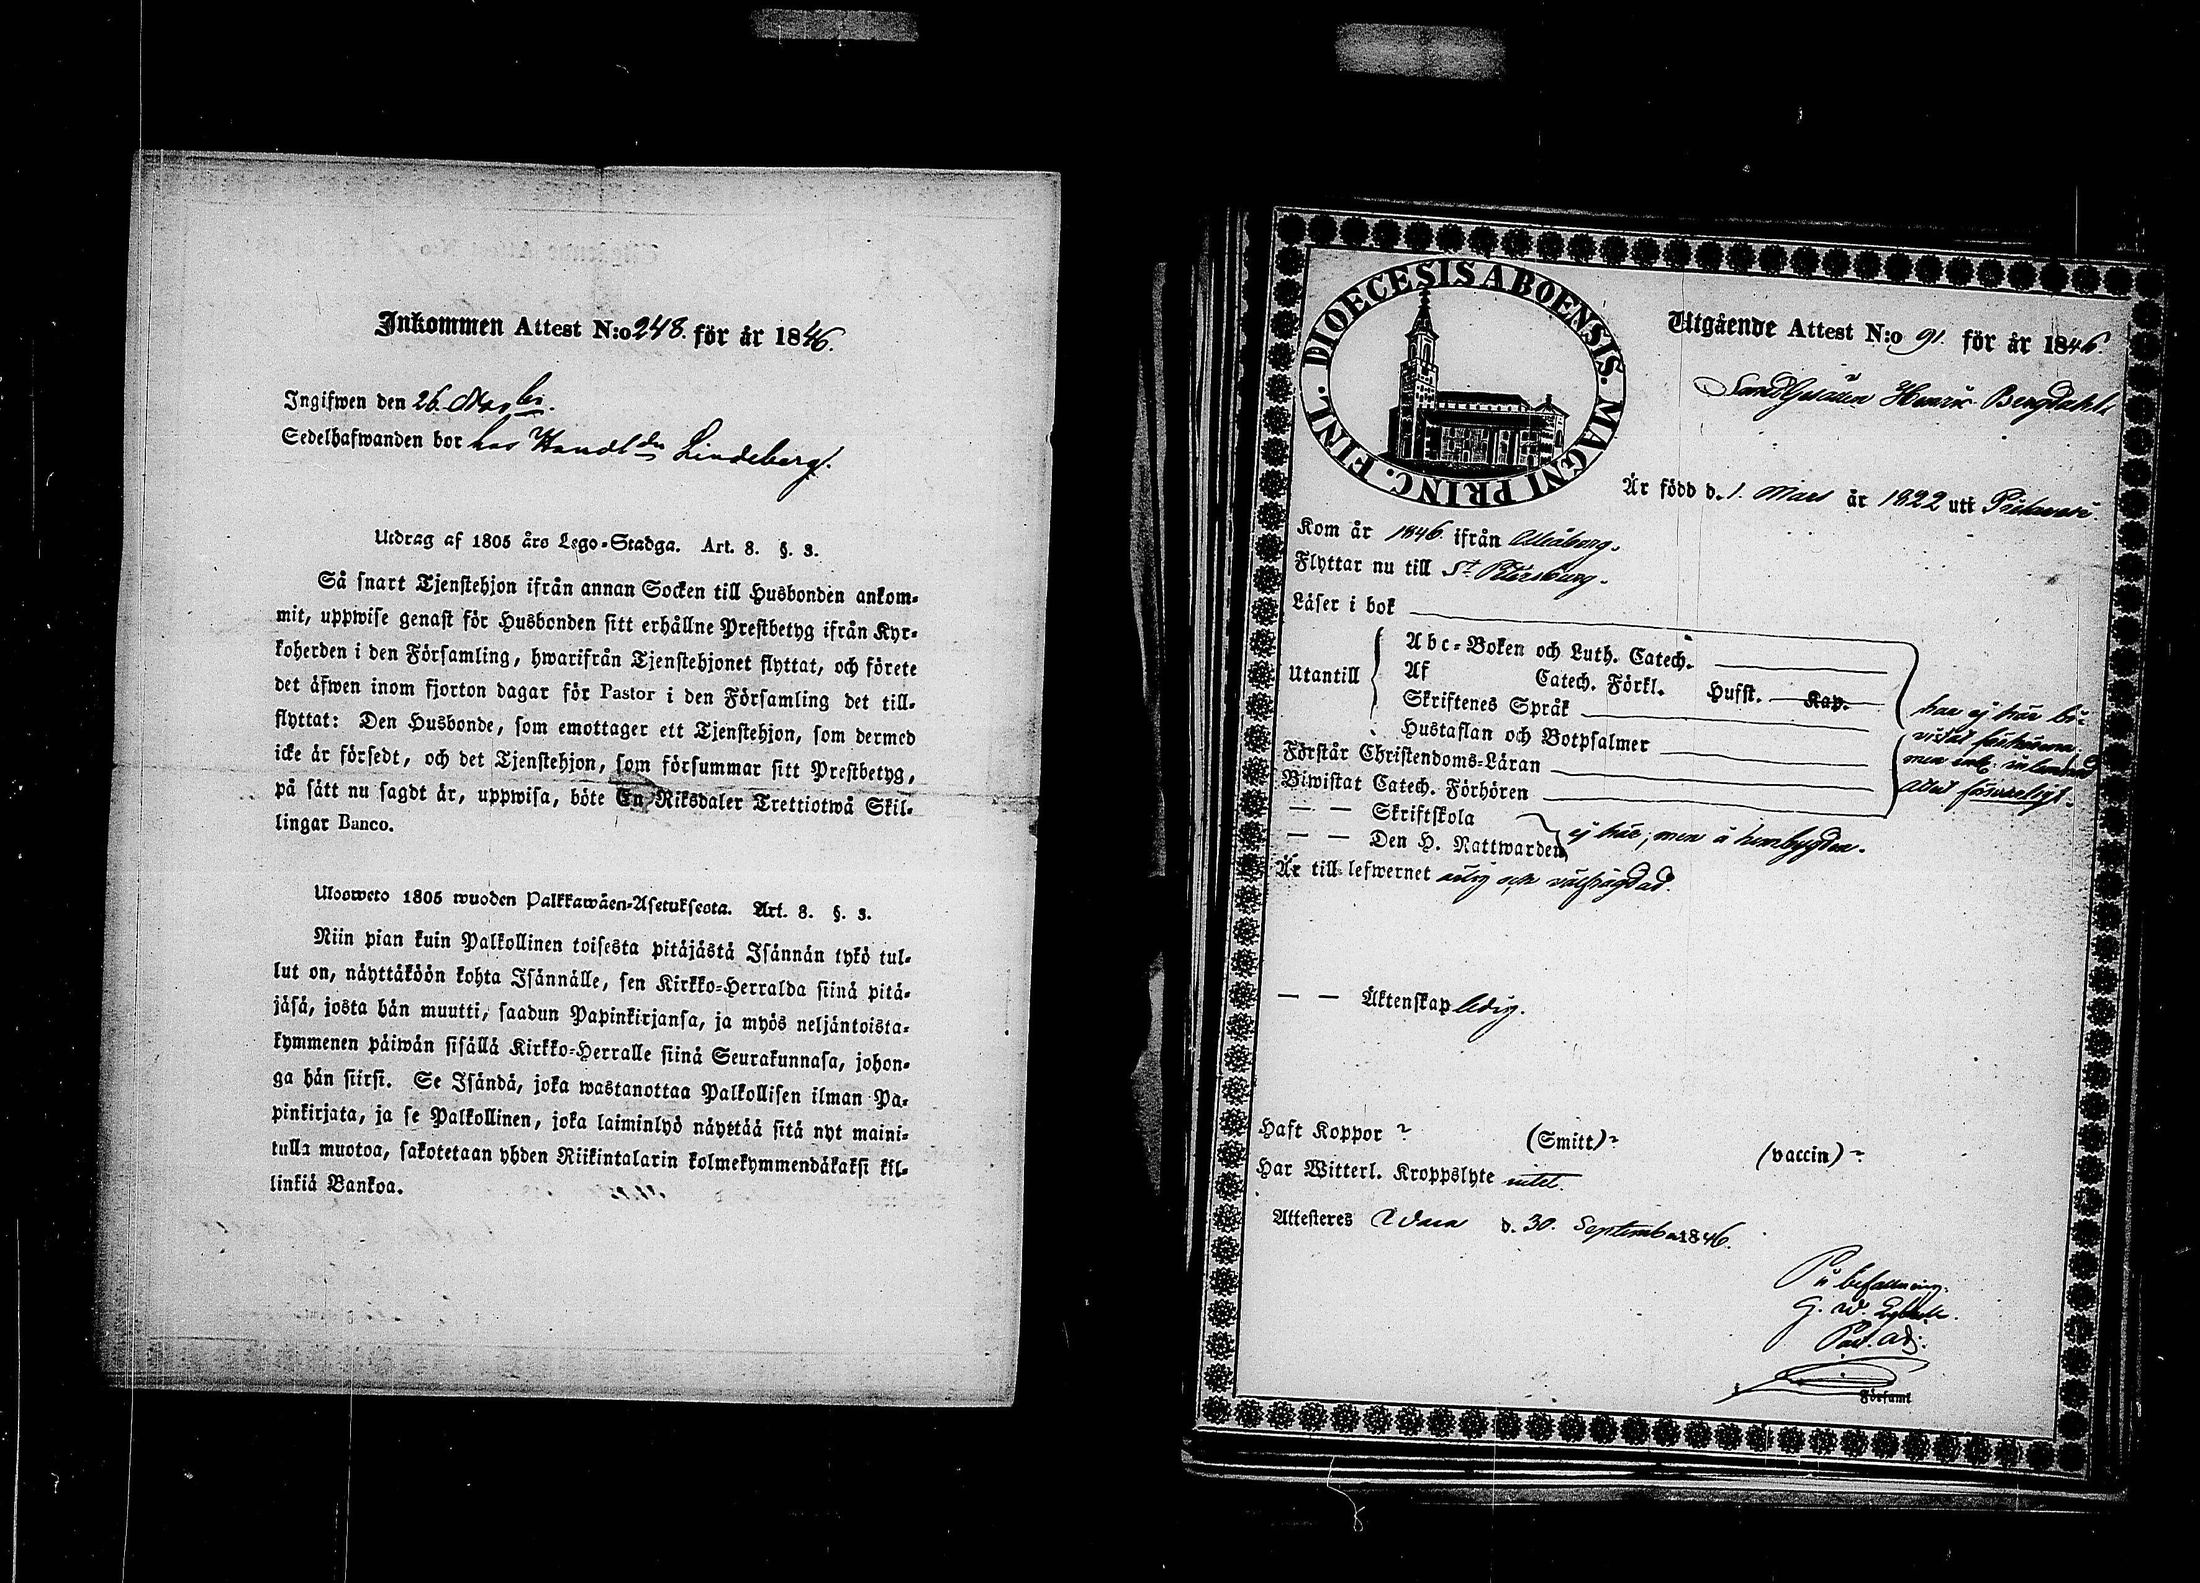 Inkommen Attest N:o 248. för år 1846.
Ingifwen den 26. Novbr.
Sedelhafwanden bor hos Handl:den Lindeberg.
Utdrag af 1805 års Lego-Stadga. Art. 8. §. 3.
Så snart Tjenstehjon ifrån annan Socken till Husbonden ankom-
mit, uppwise genast för Husbonden sitt erhållne Prestbetyg ifrån Kyr-
koherden i den Församling, hwarifrån Tjenstehjonet flyttat, och förete
det äfwen inom fjorton dagar för Pastor i den Församling det till-
flyttat: Den Husbonde, som emottager ett Tjenstehjon, som dermed
icke är försedt, och det Tjenstehjon, som försummar sitt Prestbetyg,
på sätt nu sagdt är, uppwisa, böte En Riksdaler Trettiotwå Skil-
lingar Banco.
Ulosweto 1805 wuoden Palkkawäen-Asetuksesta. Art. 8. §. 3.
Niin pian kuin Palkollinen toisesta pitäjästä Isännän tykö tul-
lut on, näyttäköön kohta Isännälle, sen Kirkko-Herralda siinä pitä-
jäsä, josta hän muutti, saadun Papinkirjansa, ja myös neljäntoista-
kymmenen päiwän sisällä Kirkko-Herralle siinä Seurakunnasa, johon-
ga hän siirsi. Se Isändä, joka wastanottaa Palkollisen ilman Pa-
pinkirjata, ja se Palkollinen, joka laiminlyö näyttää sitä nyt maini-
tulla muotoa, sakotetaan yhden Riikintalarin kolmekymmendäkaksi kil-
linkiä Bankoa.
DIOECESIS ABOENSIS. MAGNI PRINC. FINL.
Utgående Attest N:o 91. för år 1846.
Henrik Bergdahl
Är född d. 1. Mars år 1822 uti
Kom år 1846. ifrån Uleåborg.
Flyttar nu till St Petersburg.
Läser i bok
Utantill
Abc-Boken och Luth. Catech.
Af Catech. Förkl. Husst. Kap.
Skriftenes Språk
Hustaflan och Botpsalmer
Förstår Christendoms-Läran
Biwistat Catech. Förhören
har ej här bi-
vistat förhören;
men enl. inlemnad
Attest försvarligt.
— — Skriftskola
— — Den H. Nattwarden
ej här, men å hembygden.
Är till lefwernet ärlig och välfrägdad.
— — Äktenskap ledig.
Haft Koppor ? (Smitt) ? (vaccin) ?
Har Witterl. Kroppslyte intet.
Attesteres d. 30. September 1846.
På befallning.
G. W.
Past. Adj.
Församl